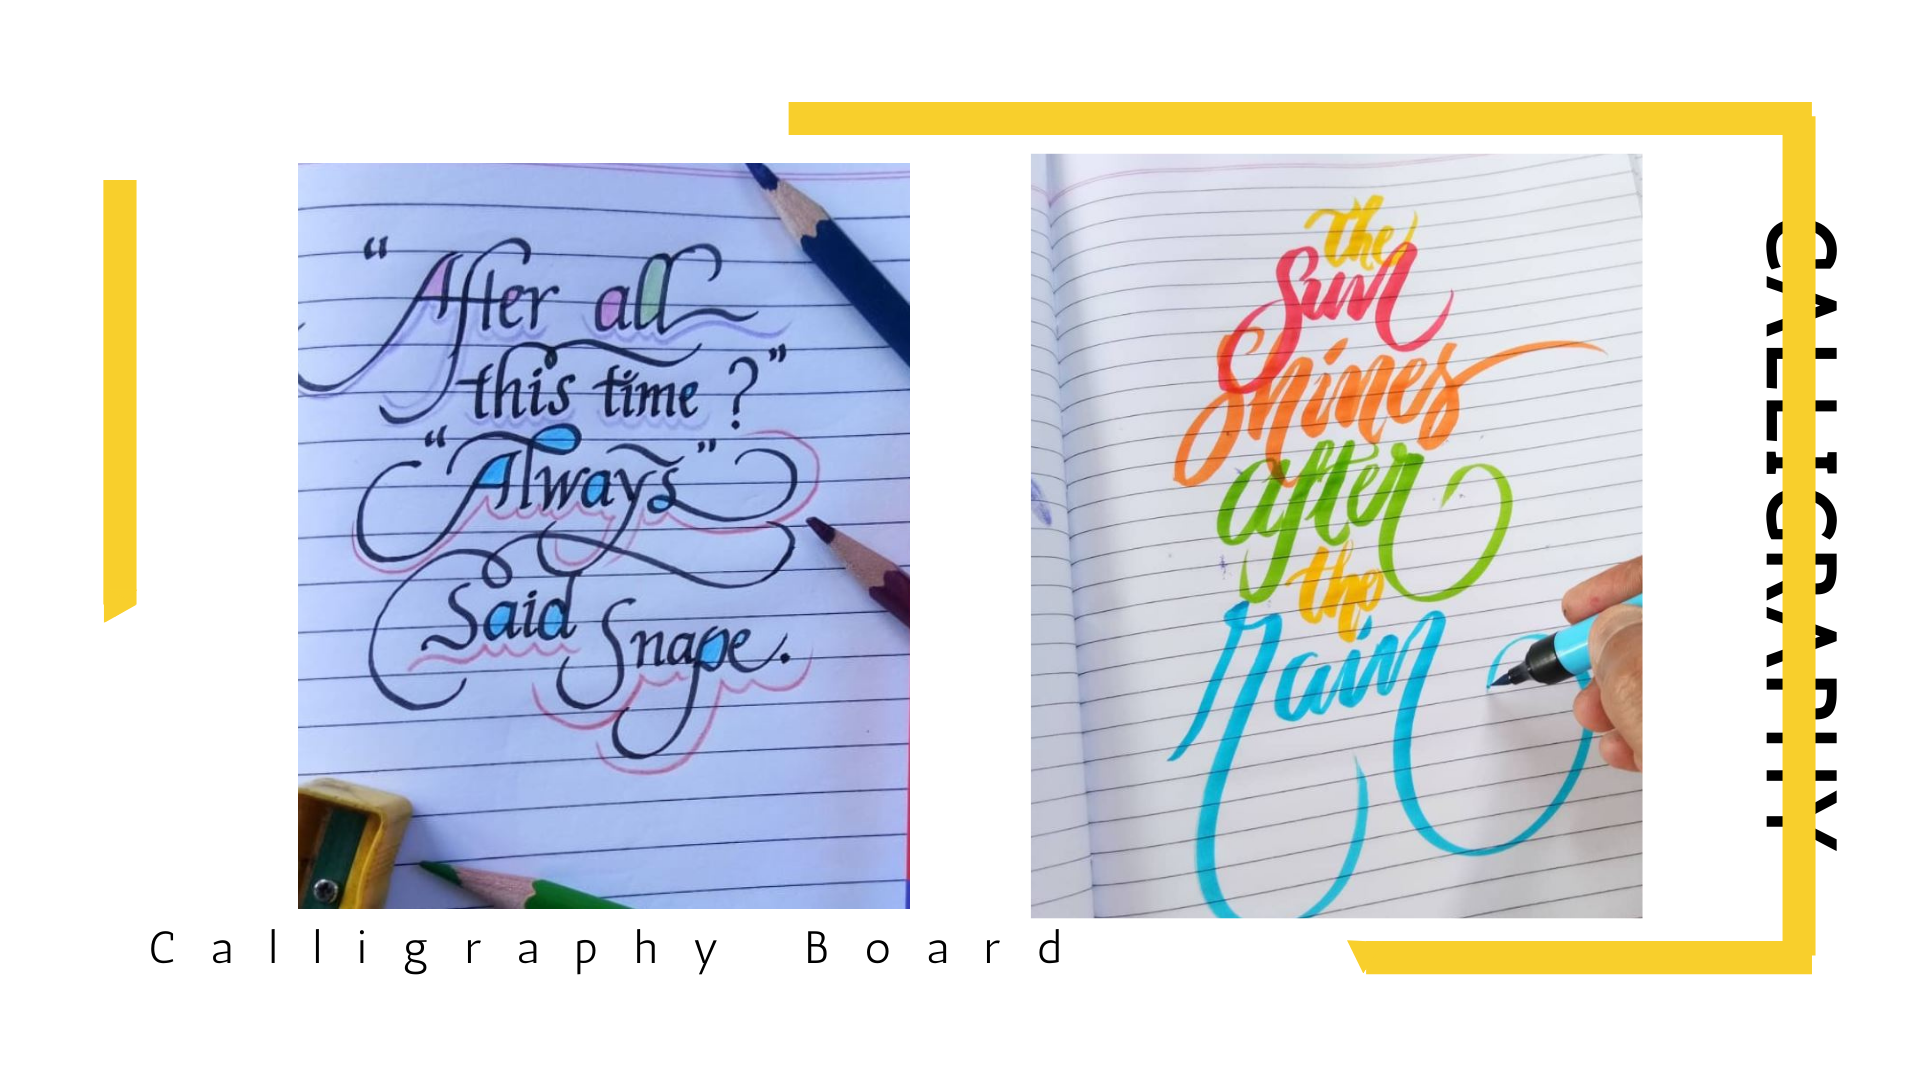 “After all
this time?”
“Always”
Said Snape.
the
Sun
Shines
after
the
Rain
CALLIGRAPHY
Calligraphy Board